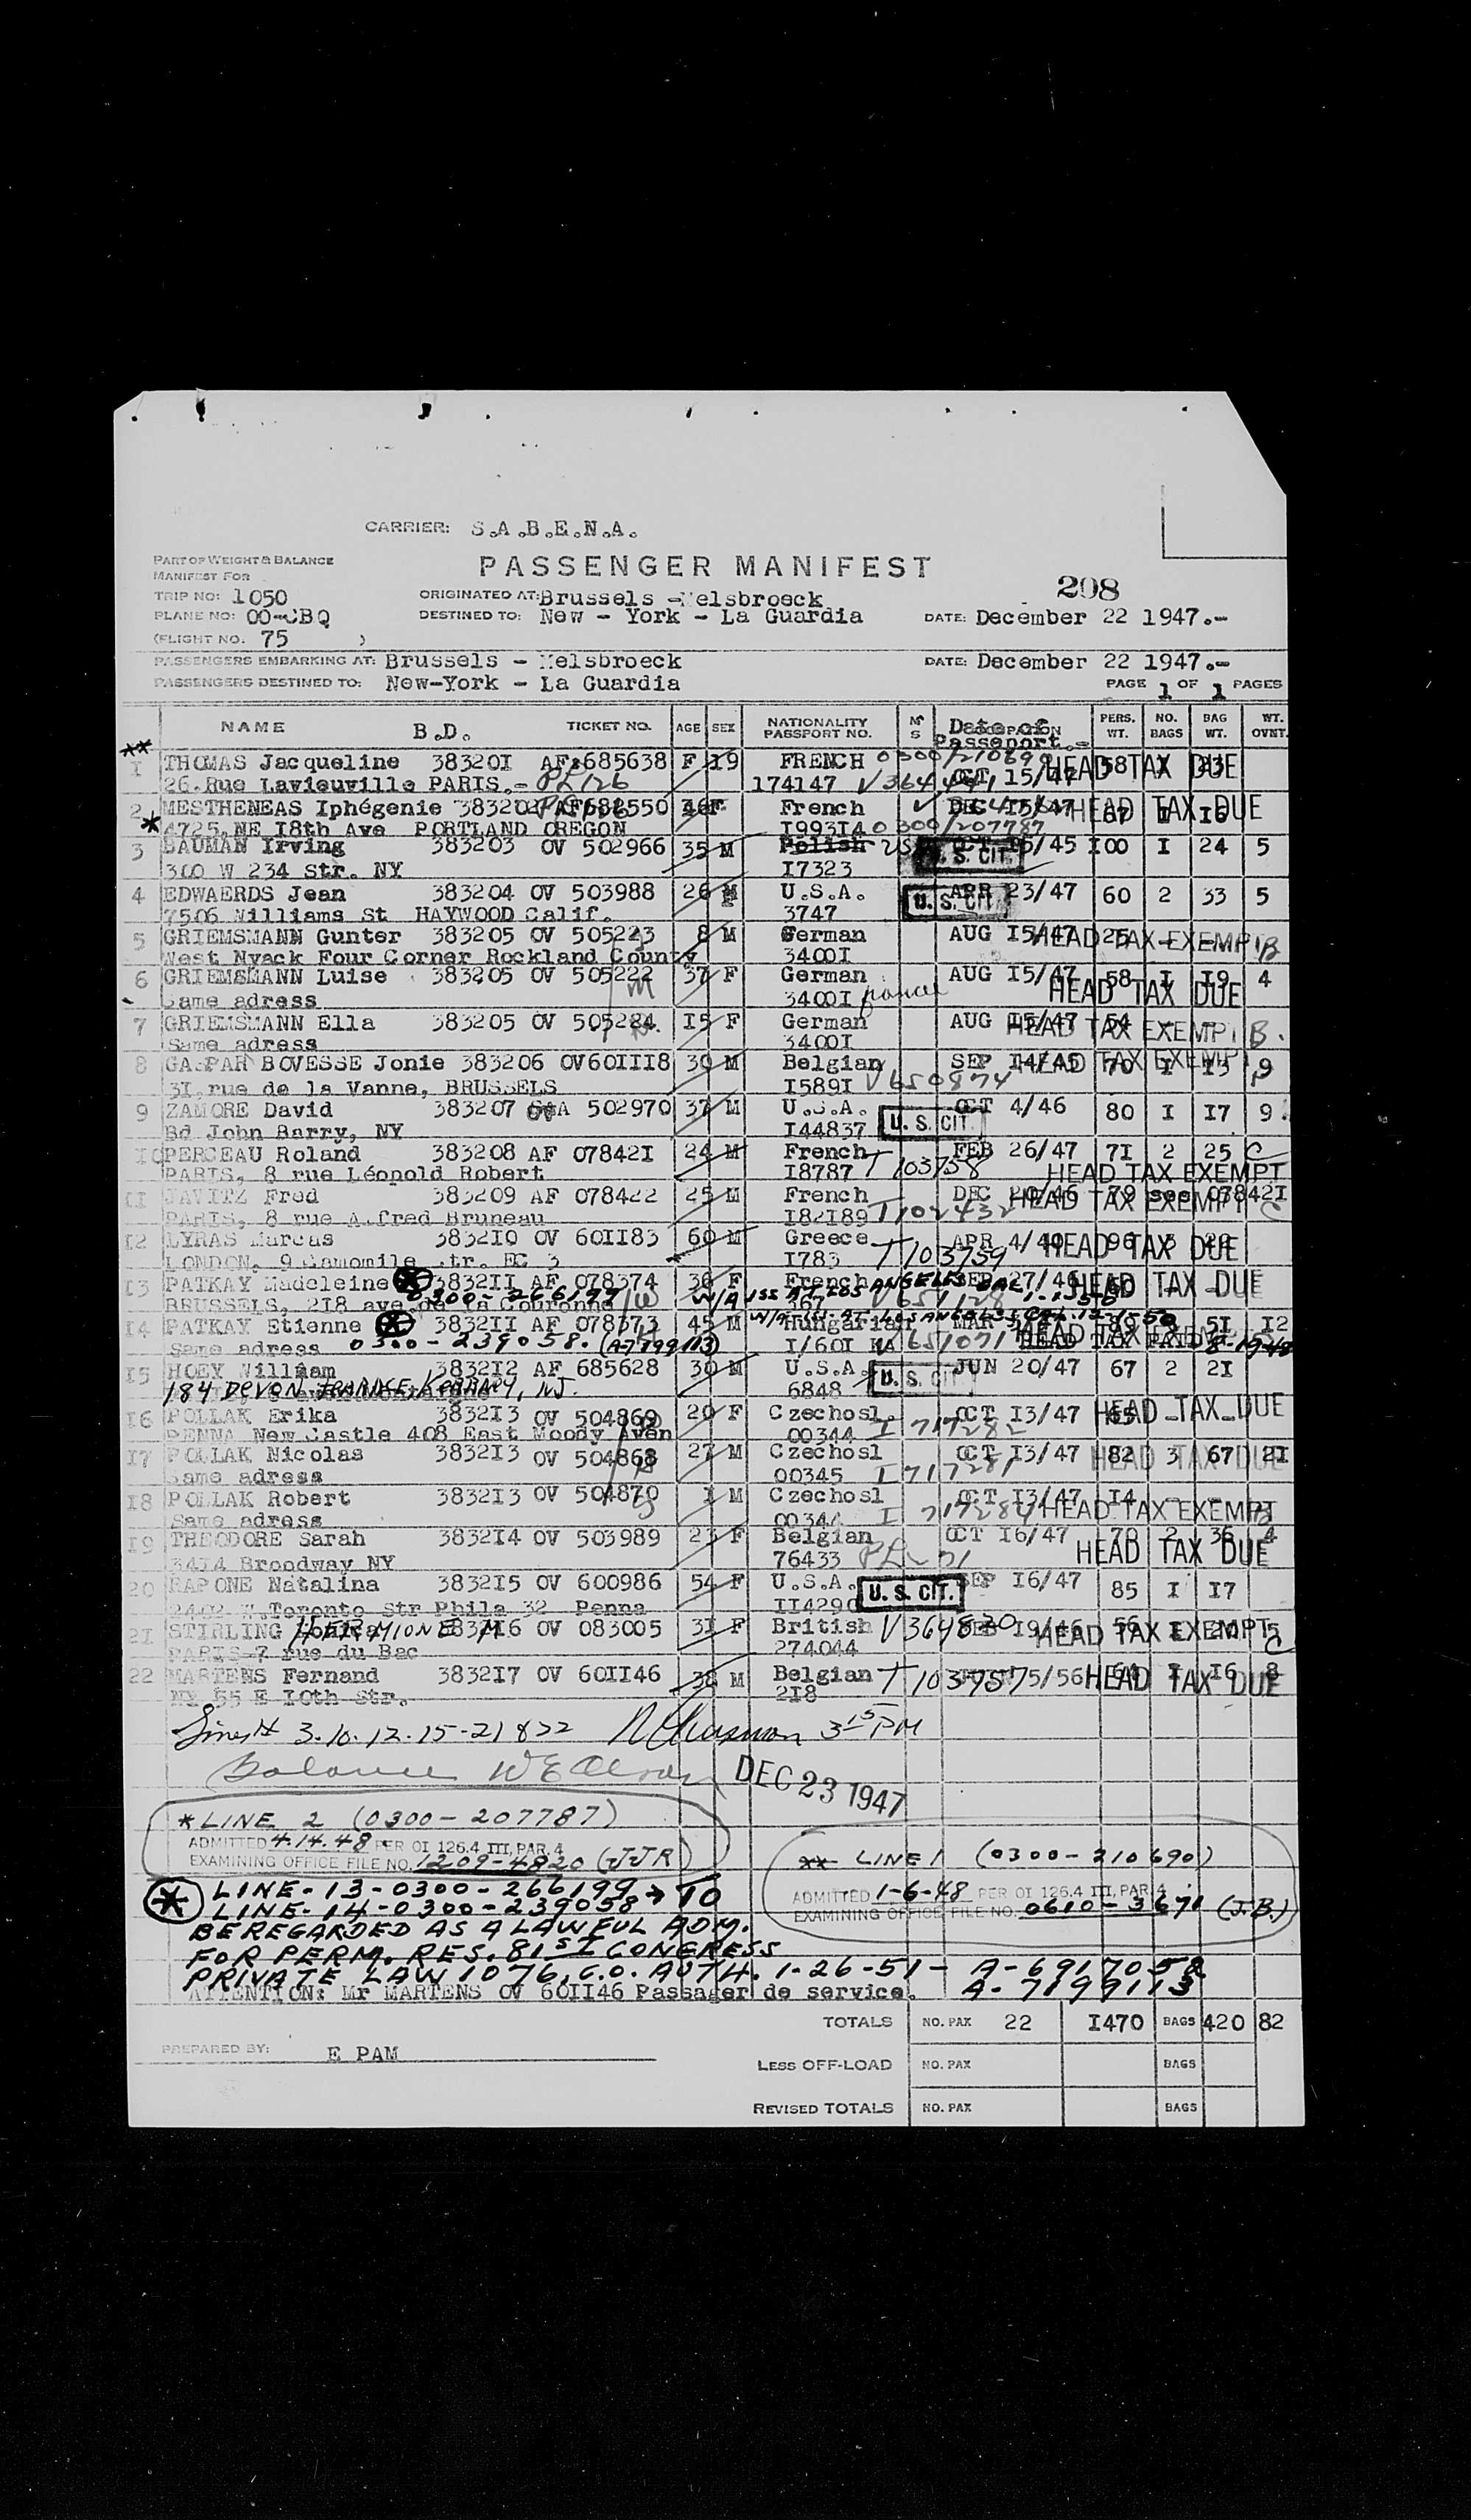 CARRIER: S.A.B.E.N.A.
PART OF WEIGHT & BALANCE
MANIFEST FOR
PASSENGER MANIFEST
208
TRIP NO: 1050 ORIGINATED AT: Brussels - Melsbroeck
PLANE NO: OO-CBQ DESTINED TO: New - York - La Guardia DATE: December 22 1947.-
(FLIGHT NO. 75 )
PASSENGERS EMBARKING AT: Brussels - Melsbroeck DATE: December 22 1947.-
PASSENGERS DESTINED TO: New-York - La Guardia PAGE 1 OF 1 PAGES
NAME B.D. TICKET NO. AGE SEX NATIONALITY PASSPORT NO. M S Date of Passeport.- PERS. WT. NO. BAGS BAG WT. WT. OVNT.
**
1 THOMAS Jacqueline 38320I AF 685638 F 19 FRENCH 0300/210690 OCT 15/47 58 HEAD TAX DUE
26.Rue Lavieuville PARIS.- 174147 V364441
2 MESTHENEAS Iphégenie 383202 AF 682550 46 F French DEC 15/47 67 I I6 HEAD TAX DUE
* 4725.NE I8th Ave PORTLAND OREGON I993I4 0300/207787
3 BAUMAN Irving 383203 OV 502966 35 M Polish OCT I6/45 I00 I 24 5 U. S. CIT.
300 W 234 Str. NY I7323
4 EDWAERDS Jean 383204 OV 503988 26 U.S.A. APR 23/47 60 2 33 5
7506 Williams St HAYWOOD Calif. 3747 U. S. CIT.
5 GRIEMSMANN Gunter 383205 OV 505223 8 M German AUG I5/47 25 - - HEAD TAX EXEMPT B
West Nyack Four Corner Rockland County 3400I
6 GRIEMSMANN Luise 383205 OV 505222 37 F German AUG I5/47 58 I I9 4
Same adress 3400I HEAD TAX DUE
7 GRIEMSMANN Ella 383205 OV 505224 I5 F German AUG I5/47 54 - - HEAD TAX EXEMPT B.
Same adress 3400I
8 GASPAR BOVESSE Jonie 383206 OV60III8 30 M Belgian SEP I4/45 70 I I3 9 HEAD TAX EXEMPT
3I,rue de la Vanne, BRUSSELS I589I V650874
9 ZAMORE David 383207 502970 37 M U.S.A. OCT 4/46 80 I I7 9
Bd John Barry, NY I44837 U. S. CIT.
I0 PERCEAU Roland 383208 AF 07842I 24 M French FEB 26/47 7I 2 25 C
PARIS, 8 rue Léopold Robert I8787 T 103758 HEAD TAX EXEMPT
II JAVITZ Fred 383209 AF 078422 25 M French DEC 20/46 79 see 07842I
PARIS, 8 rue Alfred Bruneau I82I89 T102432 HEAD TAX EXEMPT C
I2 LYRAS Marcas 3832I0 OV 60II83 60 M Greece APR 4/40 96 3 HEAD TAX DUE
LONDON, 9 Camomile Str. EC 3 I783 T103759
I3 PATKAY Madeleine 3832II AF 078374 36 F French SEP 27/46 HEAD TAX DUE
BRUSSELS, 2I8 ave de la Couronne 0300-266199 367 V651128 W/A ISS AT LOS ANGELES CAL
I4 PATKAY Etienne 3832II AF 078373 45 M Hungarian 89 3 5I I2
Same adress 0300-239058. (A-7199113) I/60I V651071
I5 HOEY William 3832I2 AF 685628 30 M U.S.A. JUN 20/47 67 2 2I
184 DEVON TERRACE KEARNY, NJ. 6848 U. S. CIT
I6 POLLAK Erika 3832I3 OV 504869 20 F Czechosl. OCT I3/47 65 - - HEAD TAX DUE
PENNA New Castle 408 East Moody Aven 00344 I 717282
I7 POLLAK Nicolas 3832I3 OV 504868 27 M Czechosl OCT I3/47 82 3 67 2I HEAD TAX DUE
Same adress 00345 I 717281
I8 POLLAK Robert 3832I3 OV 504870 I M Czechosl OCT I3/47 I4 - -
Same adress 00344 I 717284 HEAD TAX EXEMPT B
I9 THEODORE Sarah 3832I4 OV 503989 23 F Belgian OCT I6/47 70 2 36 4
34I4 Broodway NY 76433 HEAD TAX DUE
20 RAPONE Natalina 3832I5 OV 600986 54 F U.S.A. SEP I6/47 85 I I7
2402 W.Toronto Str Phila 32 Penna II4290 U. S. CIT.
2I STIRLING HERMIONE M 3832I6 OV 083005 3I F British V364830 FEB I9/46 56 I 20 5 HEAD TAX EXEMPT C
PARIS-7 rue du Bac 274044
22 MARTENS Fernand 3832I7 OV 60II46 38 M Belgian T 103757 5/56 64 I I6 8 HEAD TAX DUE
NY 55 E I0th Str. 2I8
Lines # 3.10.12.15-21 & 22 3 15 PM
Balance
DEC 23 1947
* LINE 2 (0300-207787)
ADMITTED 4.14.48 PER OI 126.4 III, PAR. 4
EXAMINING OFFICE FILE NO. 1209-4820 (JJR)
** LINE 1 (0300-210690)
ADMITTED 1-6-48 PER OI 126.4 III, PAR 4
EXAMINING OFFICE FILE NO. 0610-3671 (J.B.)
* LINE-13-0300-266199 → TO
LINE-14-0300-239058
BE REGARDED AS A LAWFUL ADM.
FOR PERM. RES. 81 ST CONGRESS
PRIVATE LAW 1076, C.O. AUTH. 1-26-51 - A-6917058
A-7199113
ATTENTION: Mr MARTENS OV 60II46 Passager de service.
TOTALS NO. PAX 22 I470 BAGS 420 82
PREPARED BY: E PAM
LESS OFF-LOAD NO. PAX BAGS
REVISED TOTALS NO. PAX BAGS